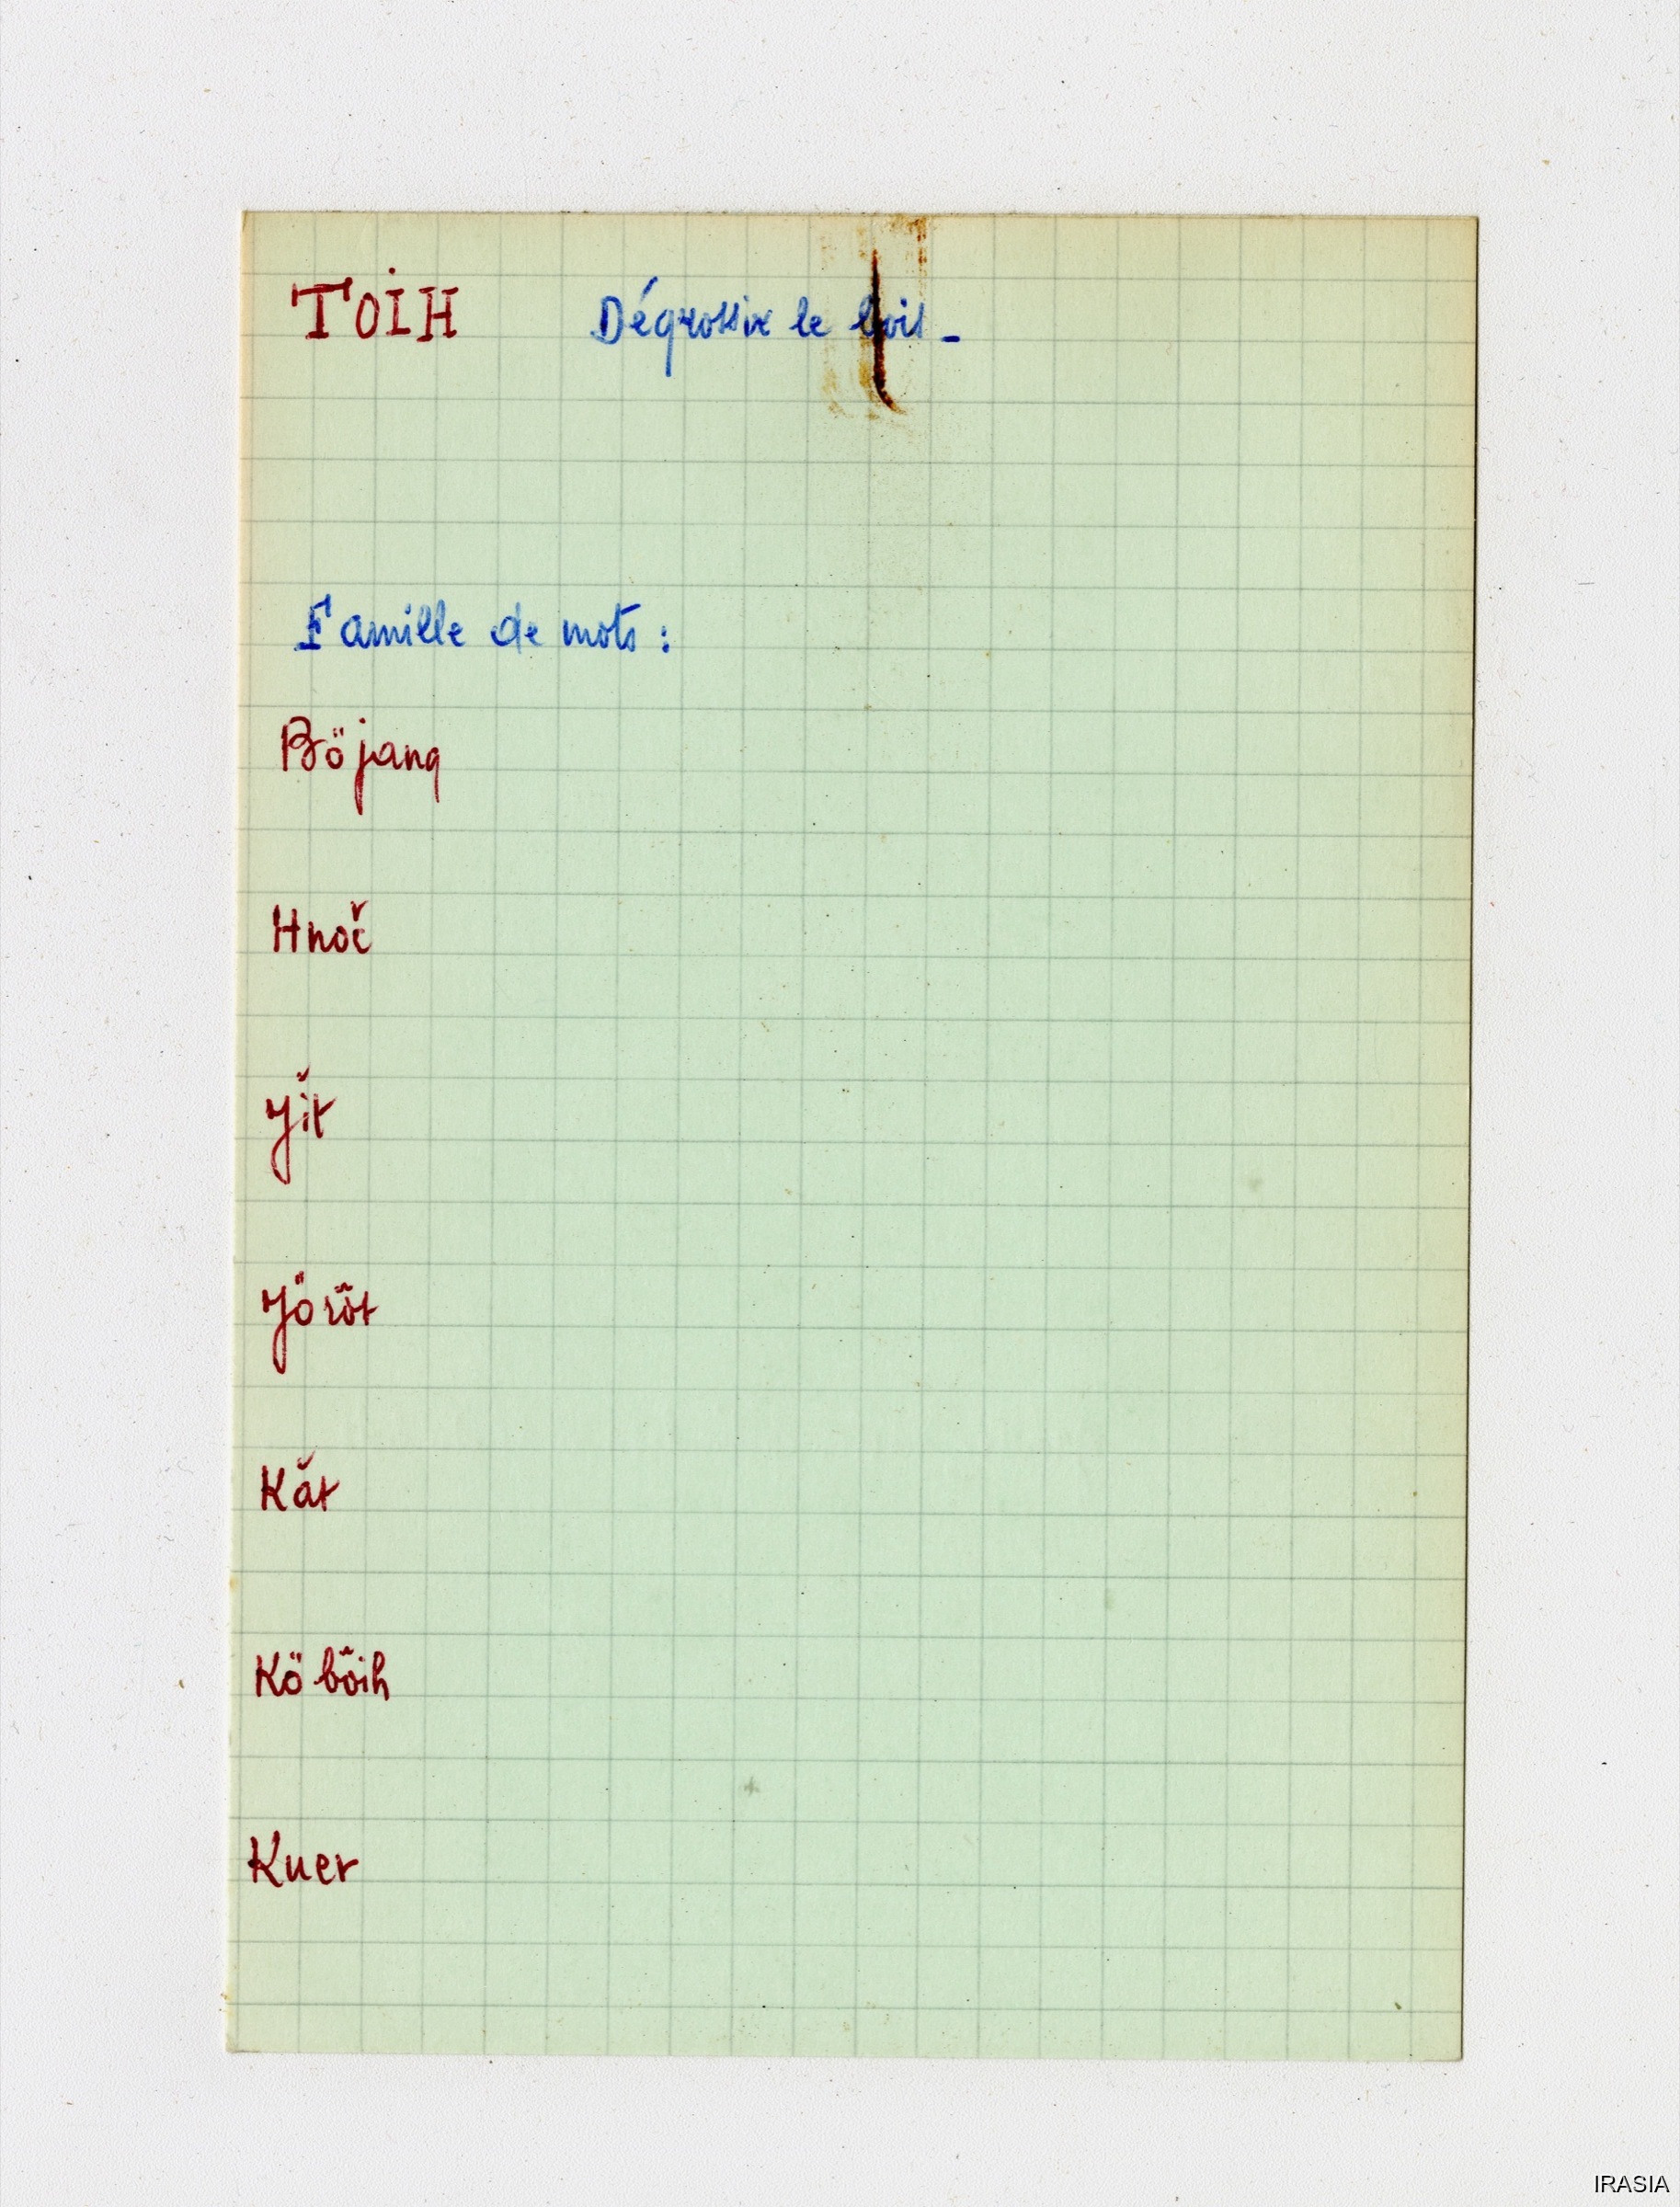 TOIH Dégrossir le bois _
Famille de mots :
Böjang
Hnoč
Jĭt
Jörôt
Kăt
Köbôih
Kuer
IRASIA